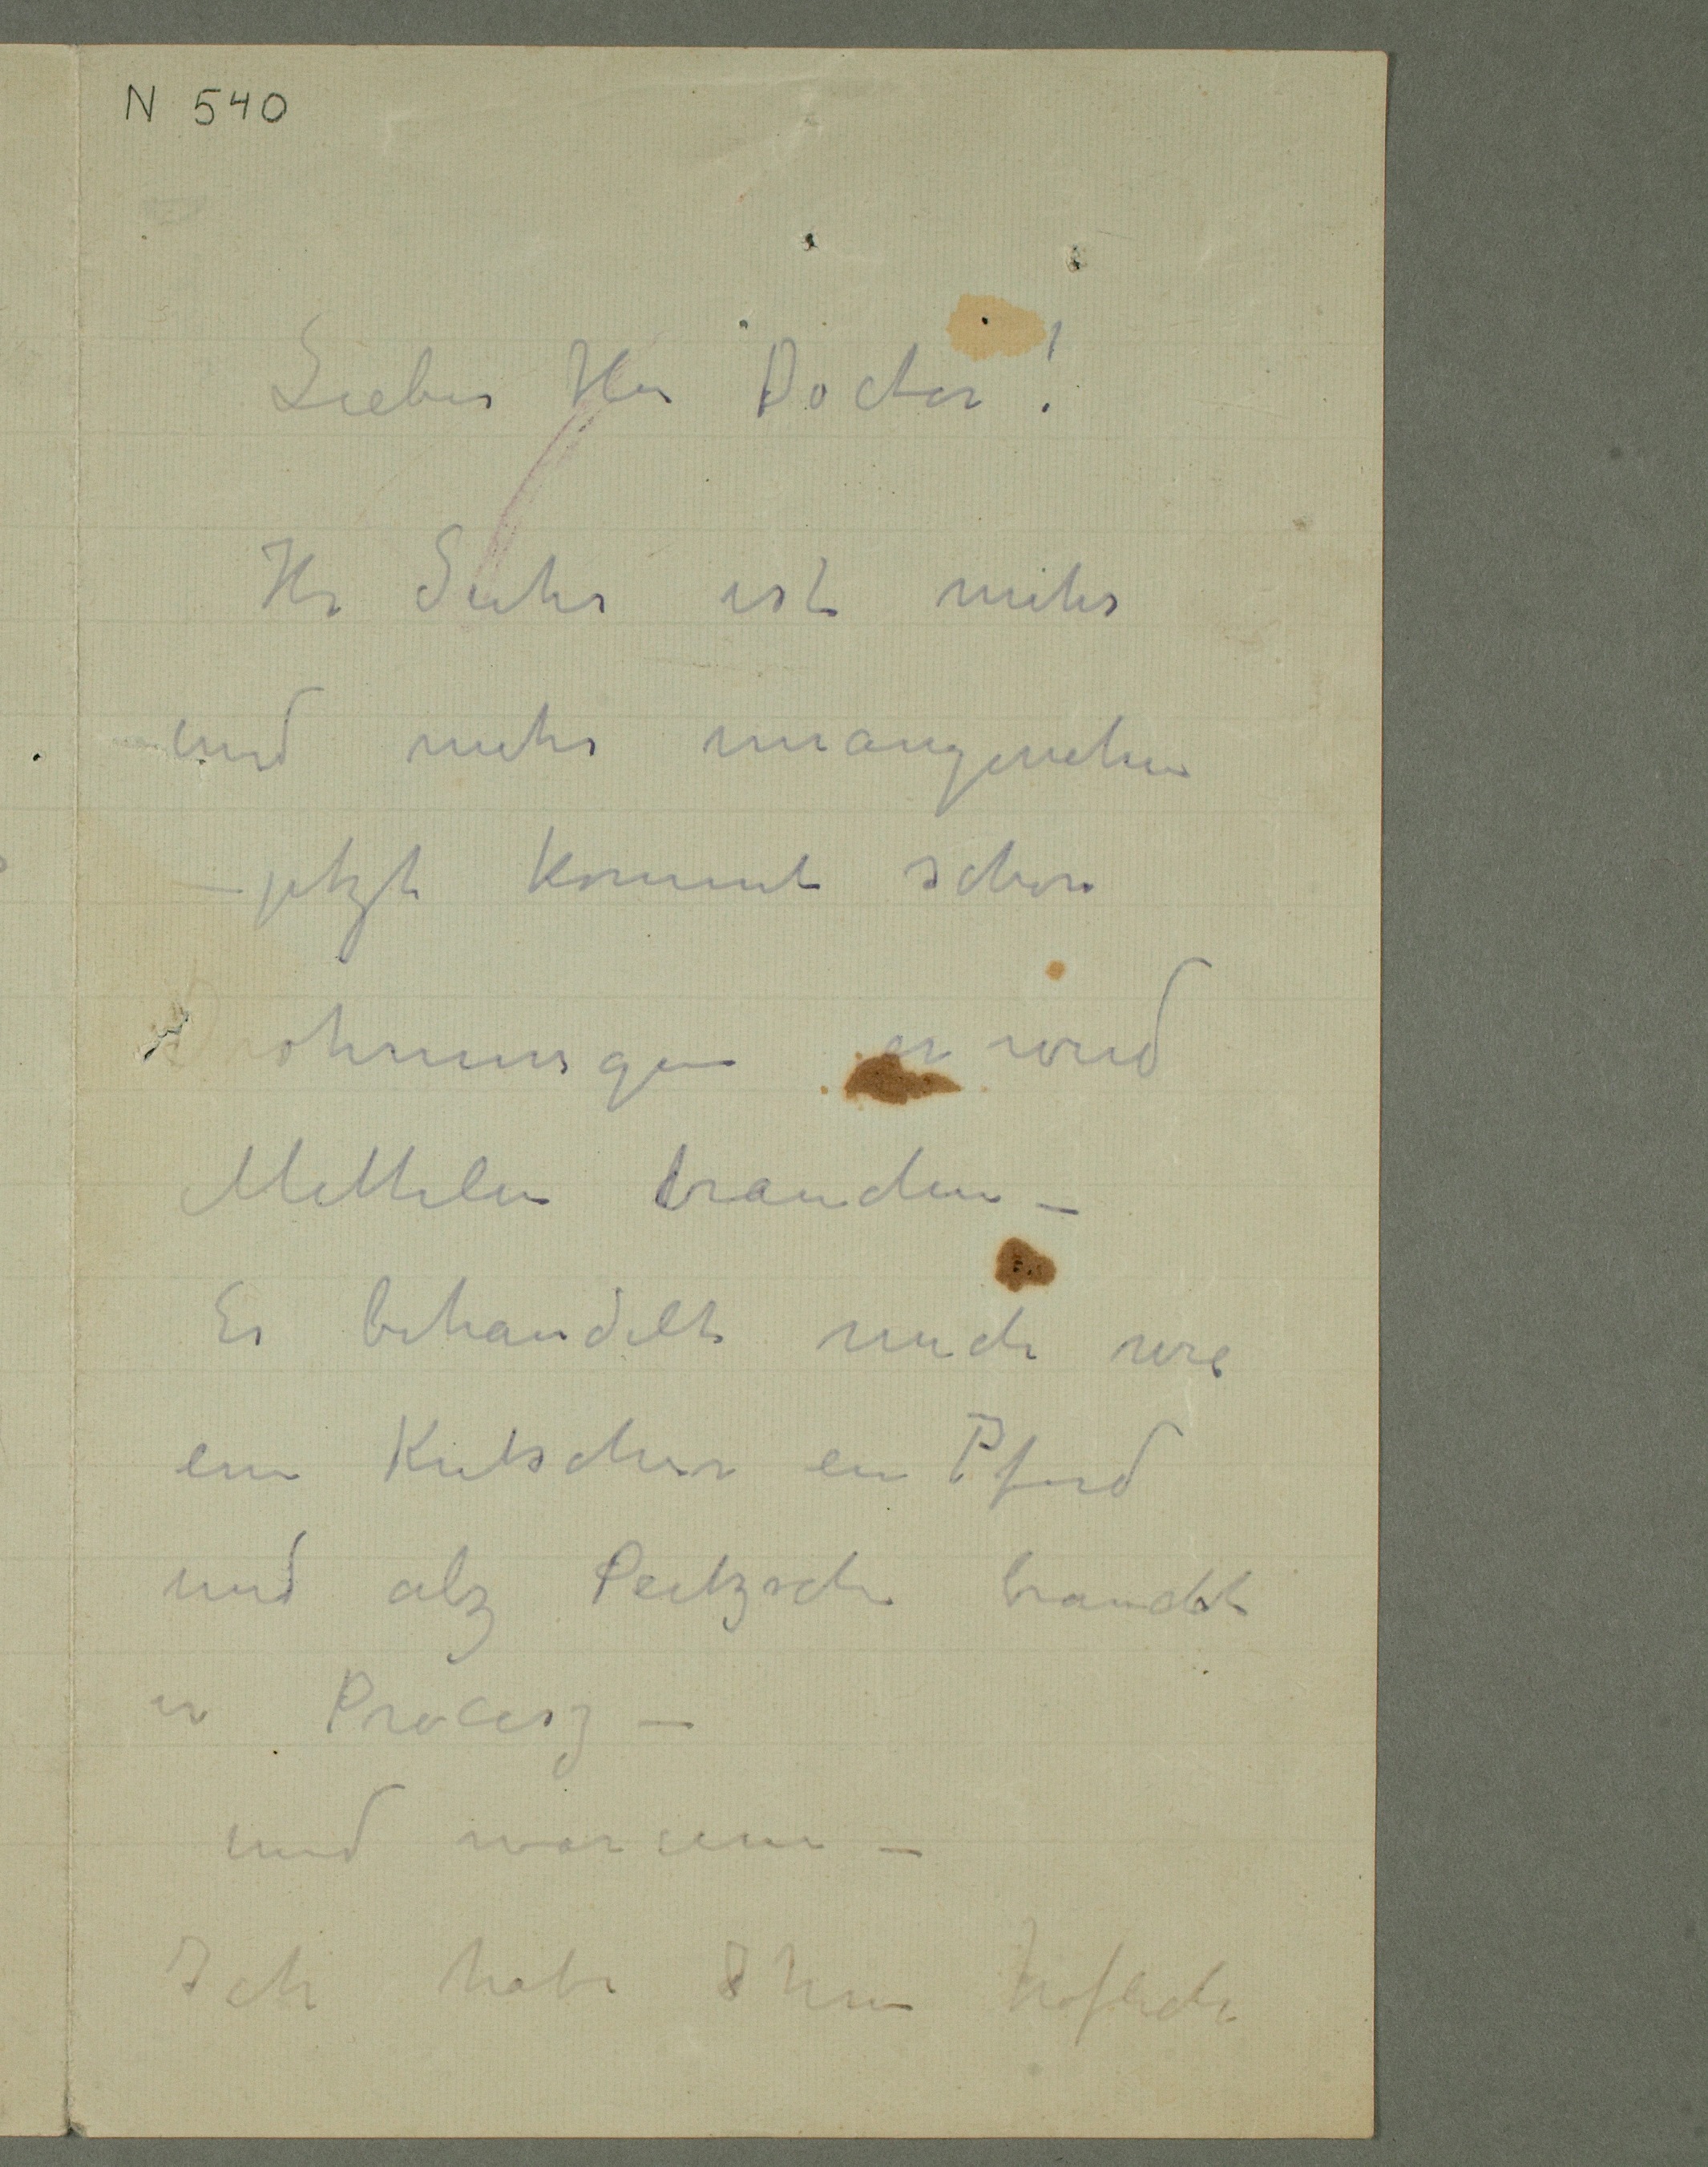 N 540
Lieber Her Doctor!
Hr Suhr ist mehr
und mehr unangenehm
– jetzt kommt schon
Drohnungen er wird
Mettelen brauchen –
Er behandelt mich wie
ein Kutscher ein Pferd
und alz Peitzsche braucht
er Procesz –
und warum –
Ich habe Ihm höflich